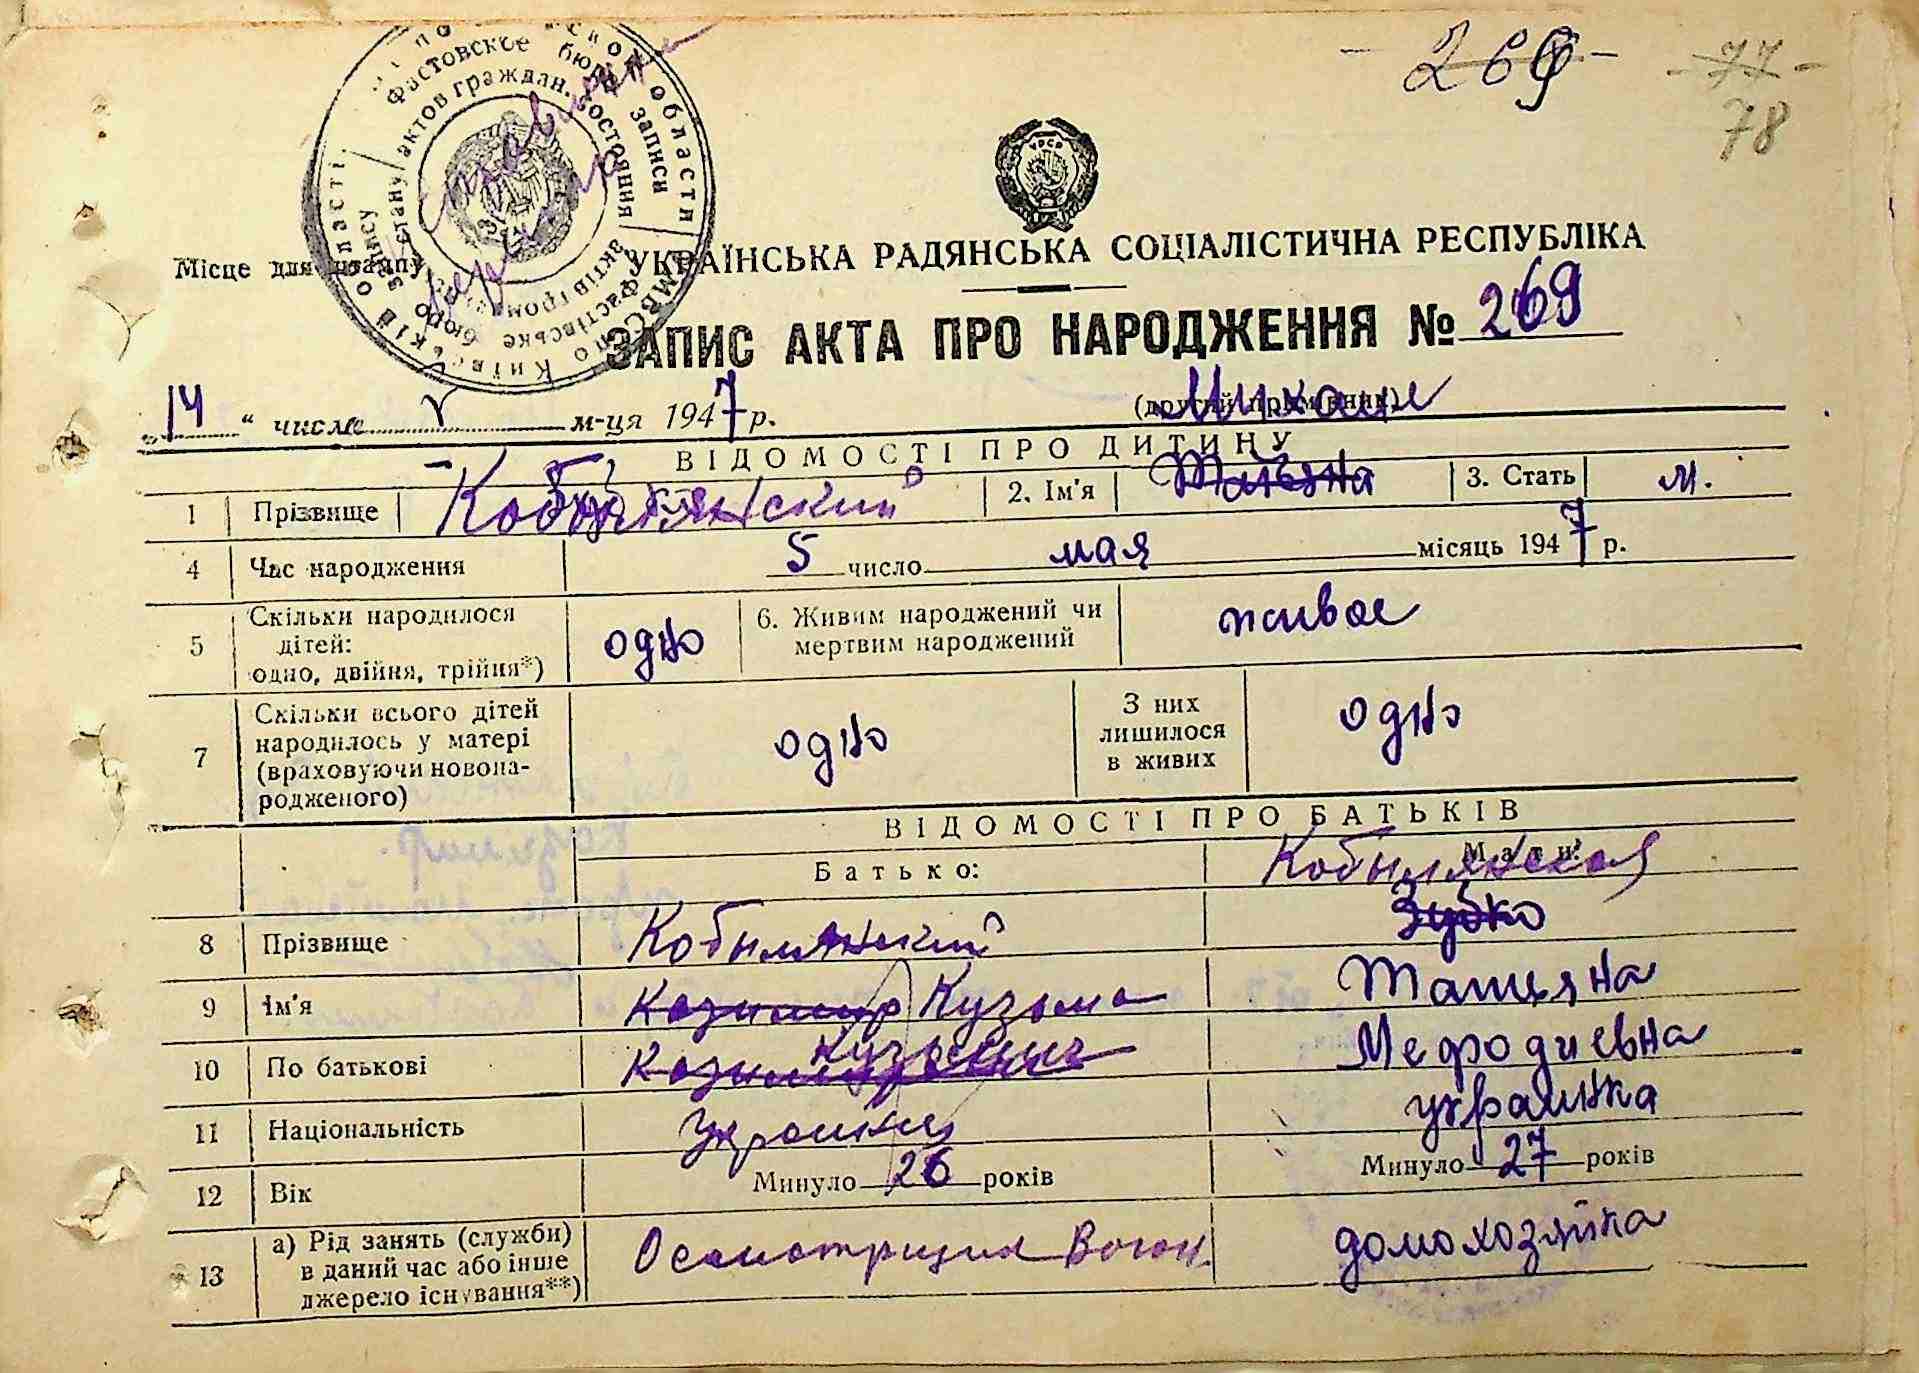 269 77
78
Фастовское бюро записи актов граждан. состояния
УРСР
Місце для штампу
УКРАЇНСЬКА РАДЯНСЬКА СОЦІАЛІСТИЧНА РЕСПУБЛІКА
ЗАПИС АКТА ПРО НАРОДЖЕННЯ № 269
14 " числа V м-ця 1947 р. (другий примірник)
ВІДОМОСТІ ПРО ДИТИНУ
1 Прізвище Кобылянский 2. Ім'я 3. Стать м.
4 Час народження 5 число мая місяць 1947 р.
5 Скільки народилося дітей: одно, двійня, трійня*) одно 6. Живим народжений чи мертвим народжений живое
7 Скільки всього дітей народилось у матері (враховуючи новонародженого) одно З них лишилося в живих одно
ВІДОМОСТІ ПРО БАТЬКІВ
Батько: Мати:
Кобылянская
8 Прізвище Кобылянский Зубко
9 Ім'я Козимир Кузьма Татияна
10 По батькові Мефодиевна
11 Національність украинец украинка
12 Вік Минуло 26 років Минуло 27 років
13 а) Рід занять (служби) в даний час або інше джерело існування**) Осмотрщик Вагон домохозяйка